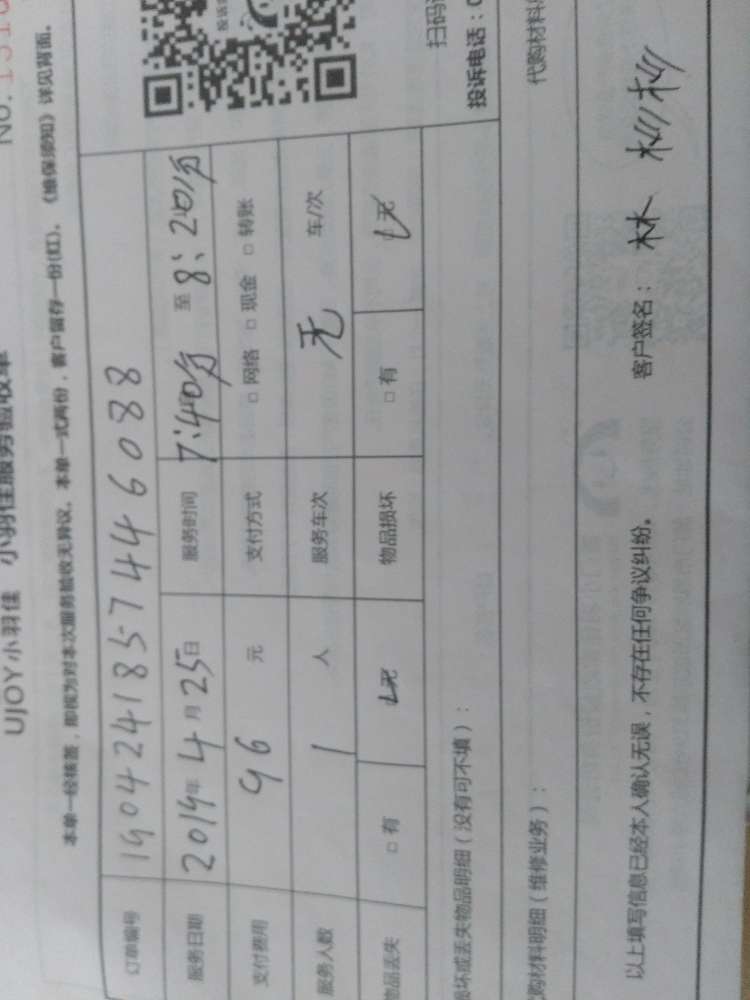 UJOY小羽佳 小羽佳服务验收单
NO.
本单一经核签，即视为对本次服务验收无异议。本单一式两份，客户留存一份(红)。《维保须知》详见背面。
订单编号 1904241857446088
服务日期 2019年4月25日 服务时间 7:40分 至 8:20分
支付费用 96 元 支付方式 □ 网络 □ 现金 □ 转账
服务人数 1 人 服务车次 无 车/次
物品丢失 □ 有 无 物品损坏 □ 有 无
损坏或丢失物品明细（没有可不填）：
扫码
投诉电话：0
购材料明细（维修业务）：
代购材料
以上填写信息已经本人确认无误，不存在任何争议纠纷。
客户签名：林